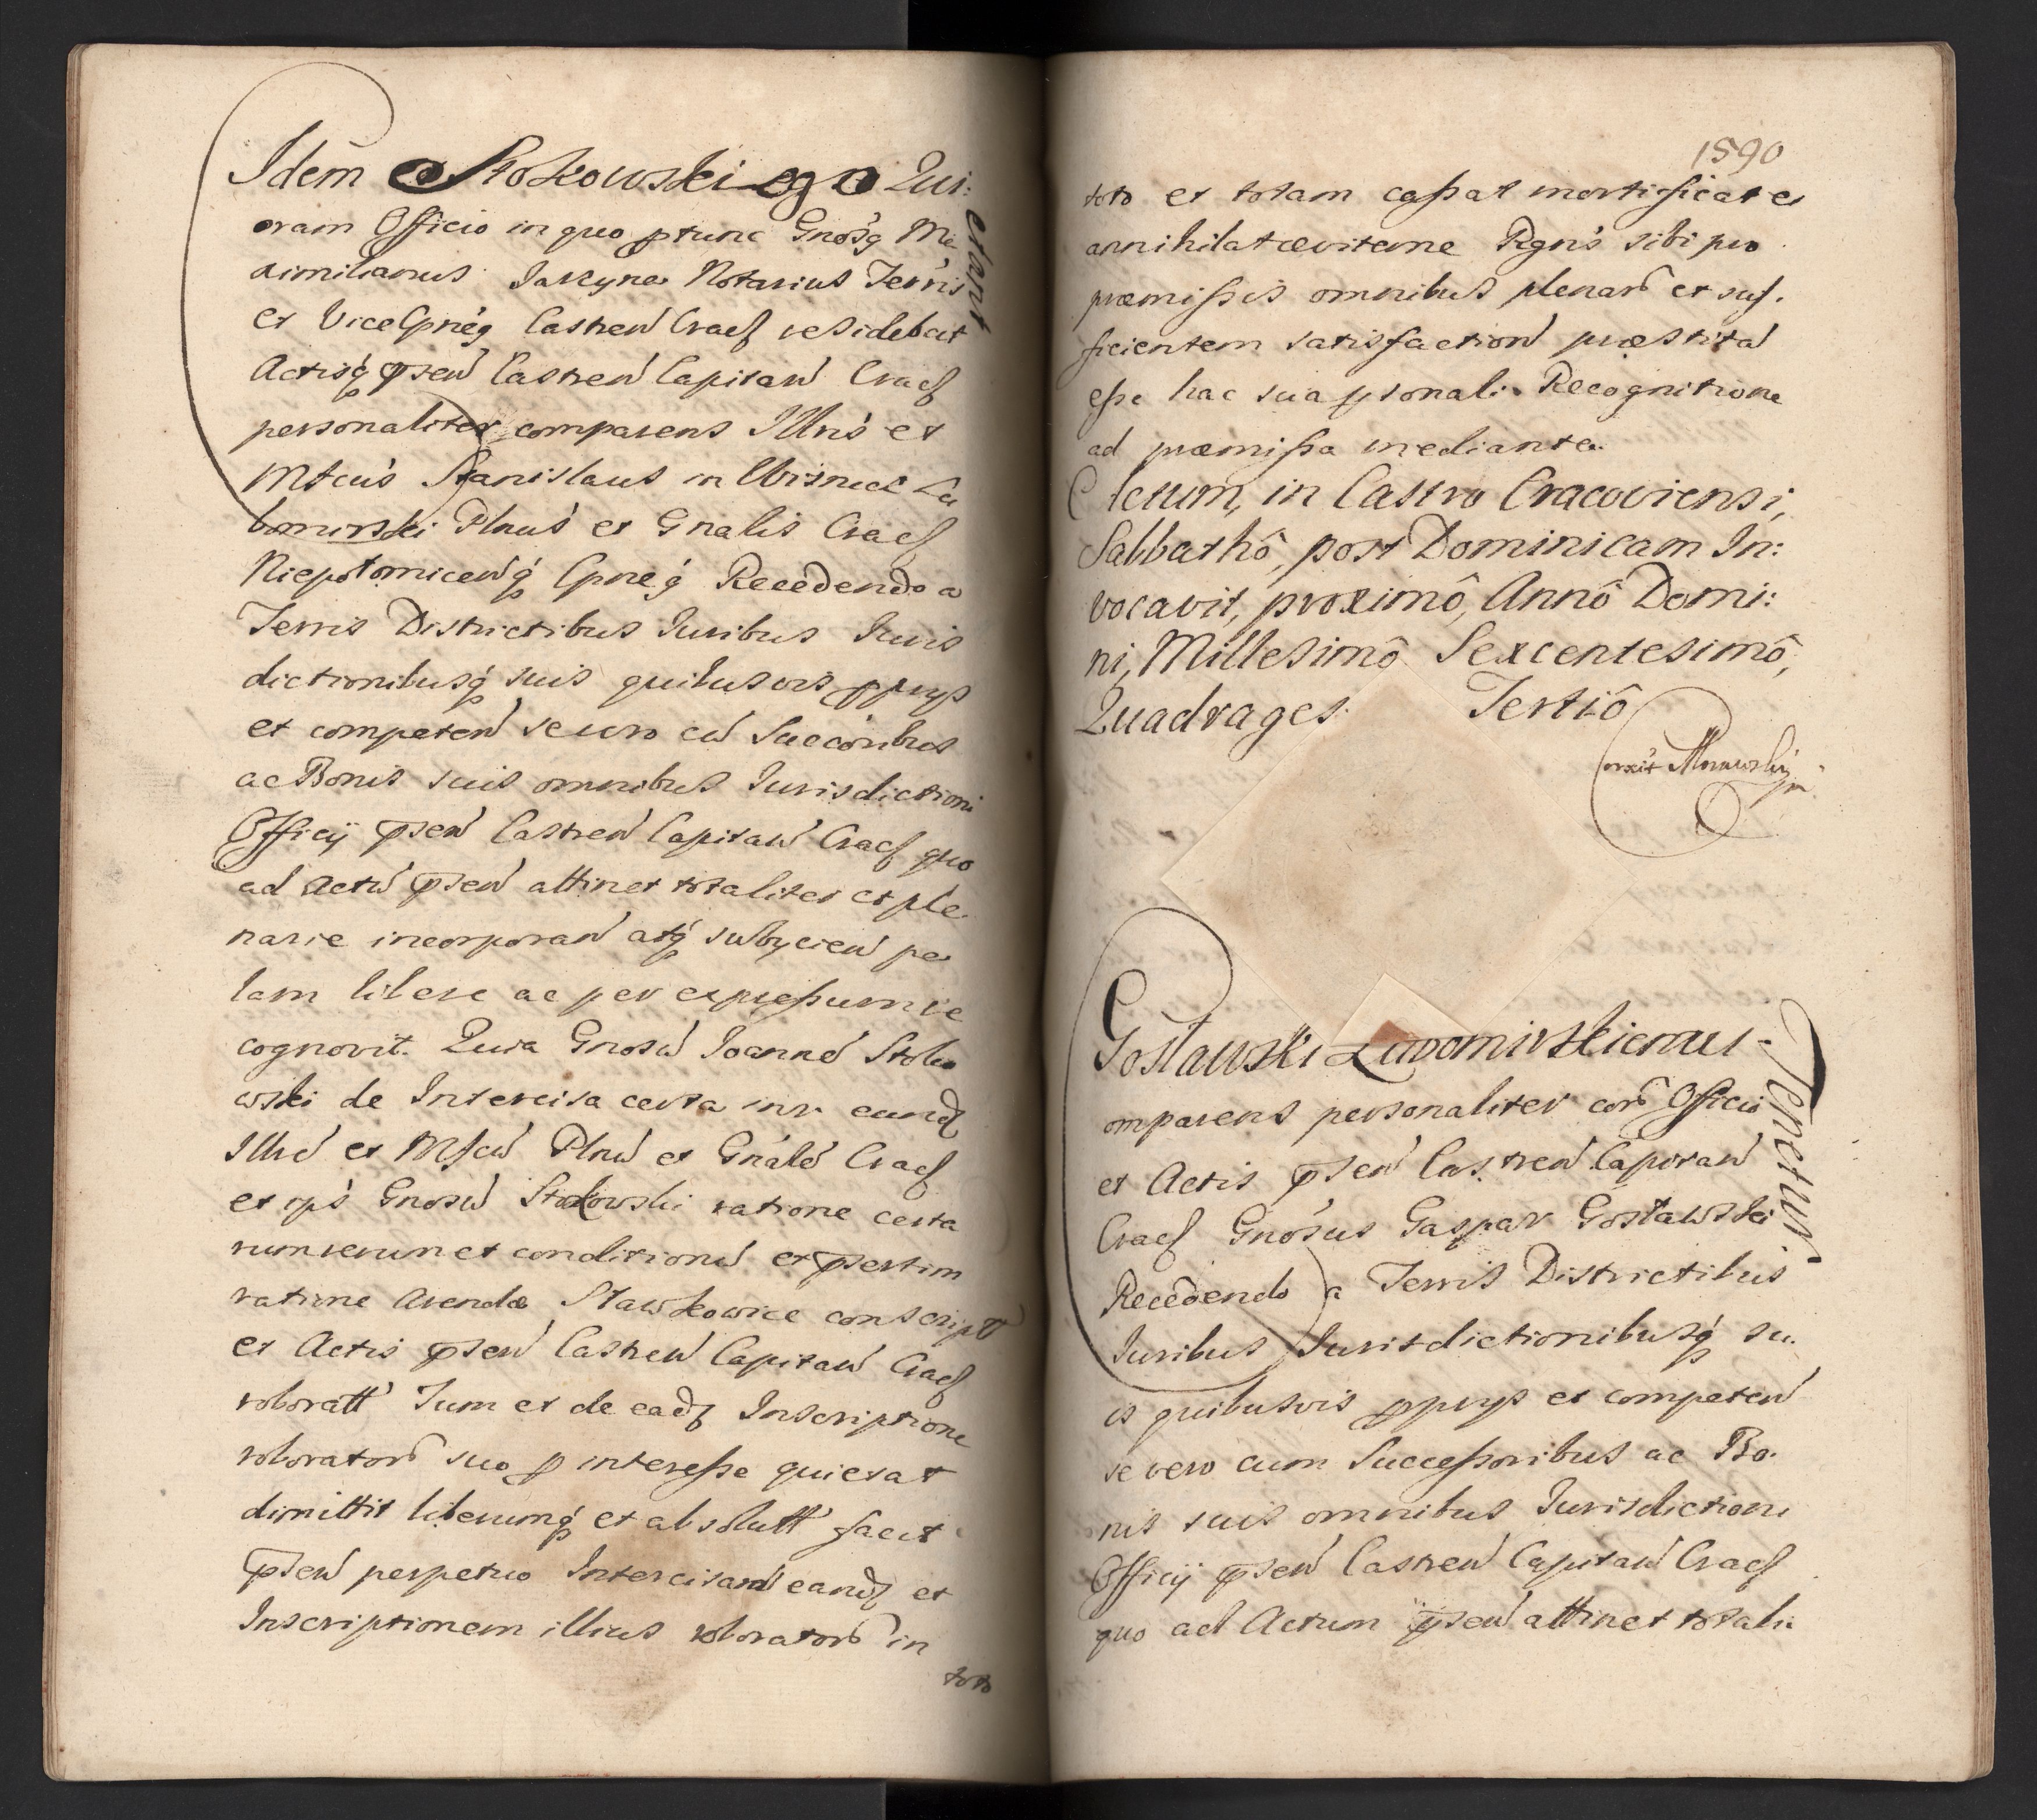 Idem Stokowskiego Qui:
etant
oram Officio in quo ptunc Gnosq Ma
ximilianus Jarcyna Notarius Terris
et Vice Cpneq Castren Cracẜ residebat
Actisq psen Castren Capitan Cracẜ
personaliter comparens Illris et
Mfcus Stanislaus in Wisnicz Lu
bomirski Plnus et Gnalis Cracẜ
Niepotomicenq Cpneq Recedendo a
Terris Districtibus Iuribus Iuris
dictionibusq suis quibusvis pprys
et competen se vero cu Succoribus
ac Bonis suis omnibus Iurisdictioni
Officij psen Castren Capitan Cracẜ quo
ad Actu psen attinet totaliter et ple
narie incorporan atq subycien pa
lam libere ac per expressum re
cognovit. Quia Gnosu Joanne Stoko
wski de Intercisa certa inr eund
Illre et Mfcu Plnu et Gnale Cracẜ
et ips Gnosu Stokowski ratione certa
rum rerum et conditionu et psertim
ratione Arendæ Sławkowice conscript
et Actis psen Castren Capitan Cracẜ
roboratt Tum et de ead Inscriptione
roborator suo p interesse quietat
dimittit liberumq et absolutt facit
psen perpetuo Intercisam eand et
Inscriptionem illius roborator in
toto
1590
toto et totam cassat mortificat et
annihilat æviterne Rgns sibi pro
præmissis omnibus plenar et suf.
ficientem satisfaction præstita
esse hac sua psonali Recognitione
ad præmissa mediante.
Actum, in Castro Cracoviensi,
Sabbathô, post Dominicam In:
vocavit, proximô, Annô Domi:
ni, Millesimô Sexcentesimô,
Quadrages. Tertiô
Gosławski Lubomirskiemu -
Tenetur
omparens personaliter cor Officio
et Actis psen Castren Capitan
Cracẜ Gnosus Gaspar Gosławski
Recedendo a Terris Districtibus
Iuribus Iurisdictionibusq su.
is quibusvis pprys et competen
se vero cum Successoribus ac Bo.
nis suis omnibus Iurisdictioni
Officij psen Castren Capitan Cracẜ
quo ad Actum psen attinet totali: